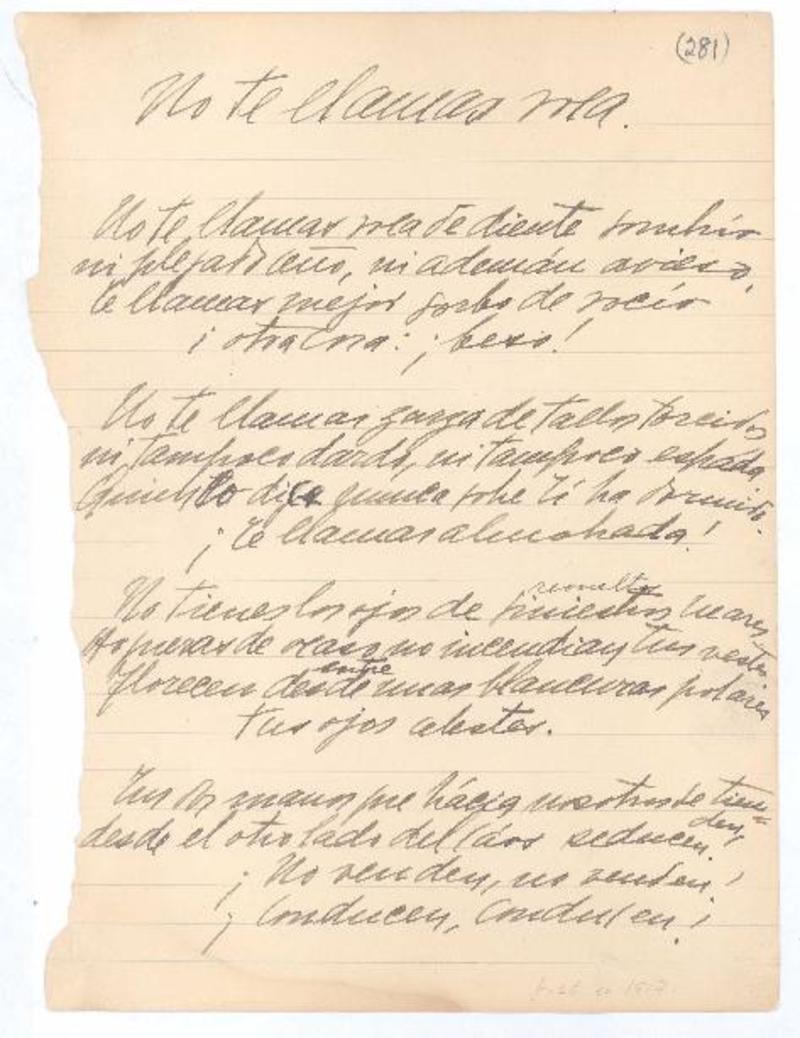 (281)
No te llamas rosa.
No te llamas rosa de diente sombrío
ni plegado ceño, ni ademán avieso,
te llamas mejor sorbo de rocío
i otra cosa: ¡beso!
No te llamas zarza de tallos torcidos
ni tampoco dardo, ni tampoco espada
Quien lo dijo nunca sobre ti ha dormido.
¡te llamas almohada!
revueltos
No tienes los ojos de siniestros mares
Hogueras de ocaso no incendian tus vestes
entre
Florecen desde unas blancuras polares
tus ojos celestes.
Tus dos manos que hácia nosotros se tien=
den,
desde el otro lado del caos seducen
¡No venden, no venden!
¡Conducen, conducen!